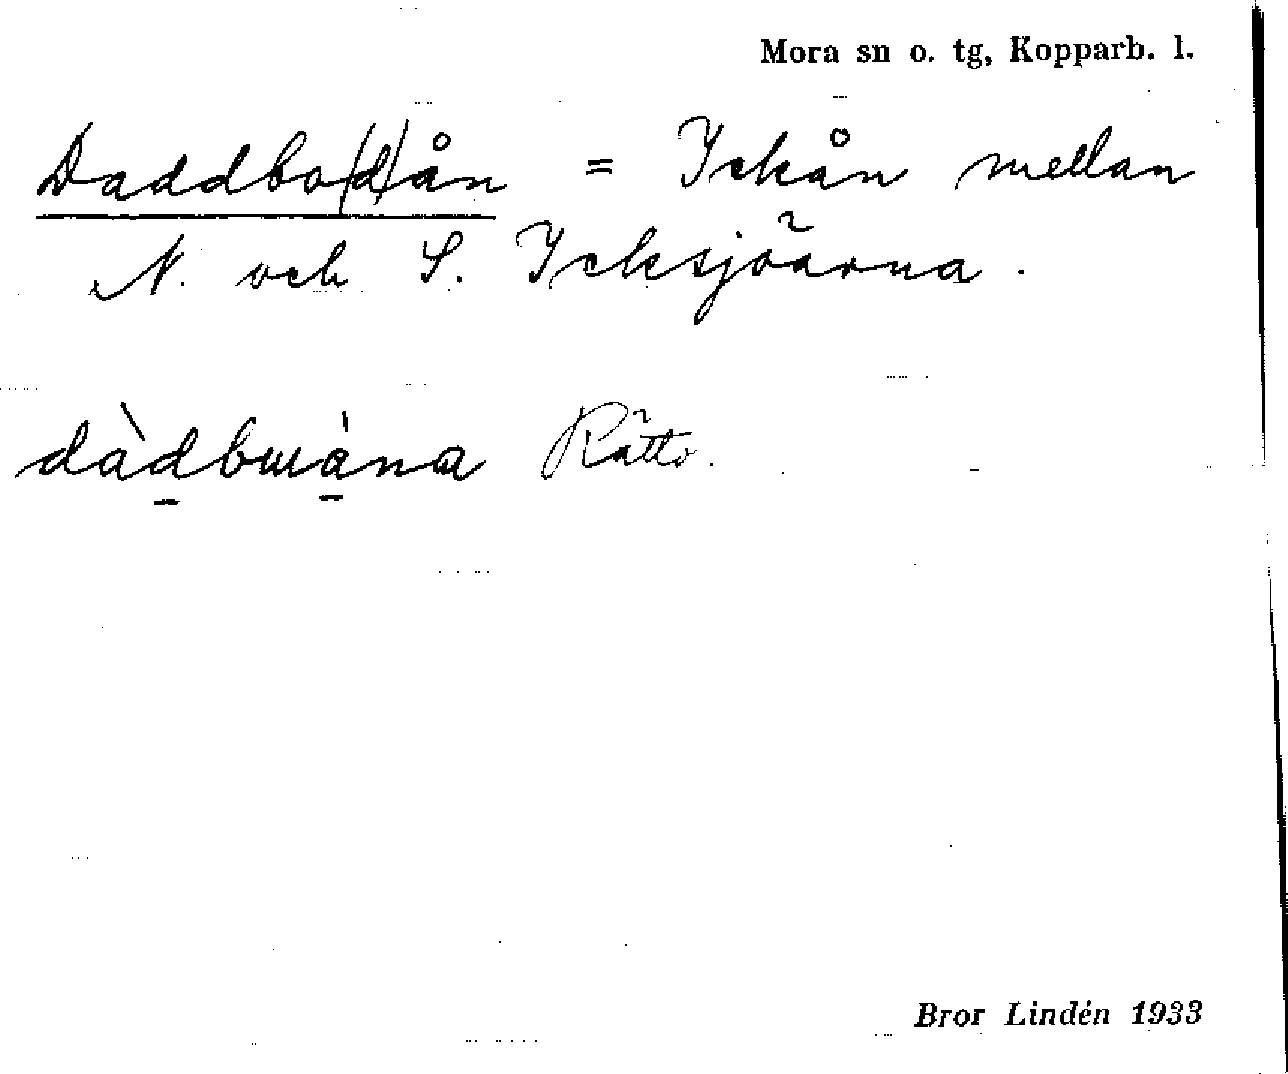 Mora sn o. tg, Kopparb. l.
Daddbo(d)ån = Ickån mellan
N. och S. Icksjöarna.
dàdbɯána Rättv.
Bror Lindén 1933